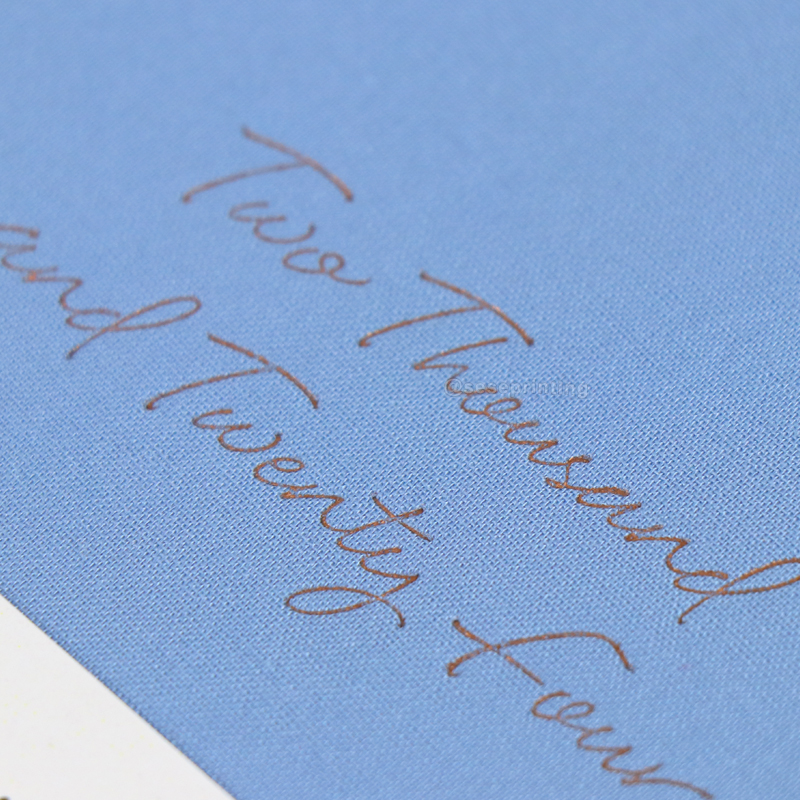 Two Thousand
and Twenty Four
@seseprinting